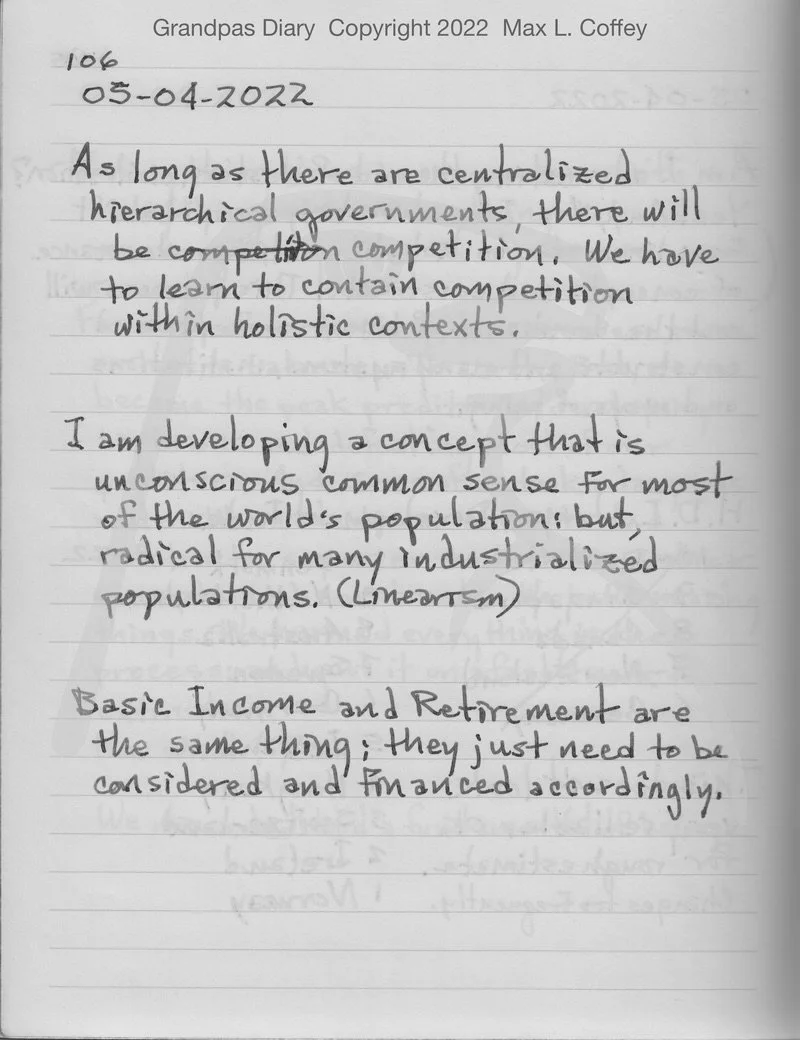 Grandpas Diary Copyright 2022 Max L. Coffey
106
05-04-2022
As long as there are centralized
hierarchical governments, there will
be competiton competition. We have
to learn to contain competition
within holistic contexts.
I am developing a concept that is
unconscious common sense for most
of the world's population: but,
radical for many industrialized
populations. (Linearism)
Basic Income and Retirement are
the same thing; they just need to be
considered and financed accordingly.